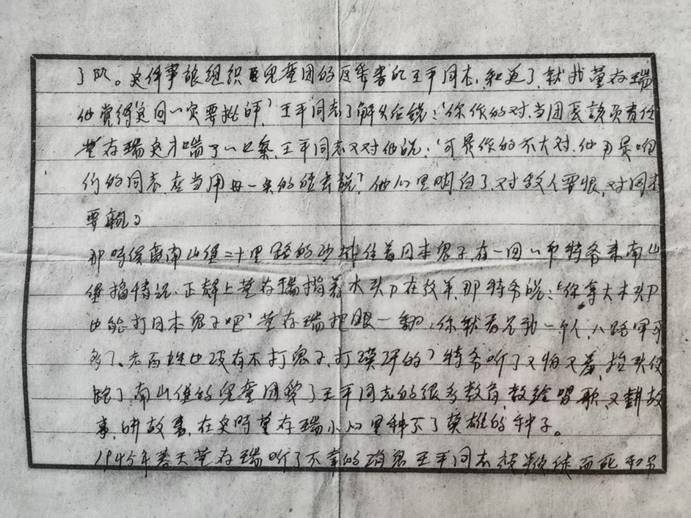 了队。这件事被组织儿童团的区委书记王平同志知道了，就找董存瑞
他觉得这回一定要挨呲，王平同志了解以后说：你作的对，当团长应负责任
董存瑞这才喘了一口气，王平同志又对他说：可是你的不大对，他可是咱
们的同志，应当用一的说，他心里明白了，对敌人要恨，对同志
要亲。
那时候离南山堡二十里路的沙城住着日本鬼子，有一回一个特务来南山
堡搞情况，正碰上董存瑞指着木头刀在放羊，那特务说：你拿大木头刀
也能打日本鬼子吧？董存瑞把眼一翻，你就看见我一个人，八路军可
多了、老百姓也没有不打鬼子，打汉奸的，特务听了又怕又羞，抬头便
跑了，南山堡的儿童团受了王平同志的很多教育，教给唱歌，又讲故
事，讲故事，在这时董存瑞小心里种下了英雄的种子。
1945年春天董存瑞听了不幸的消息王平同志被叛徒而死